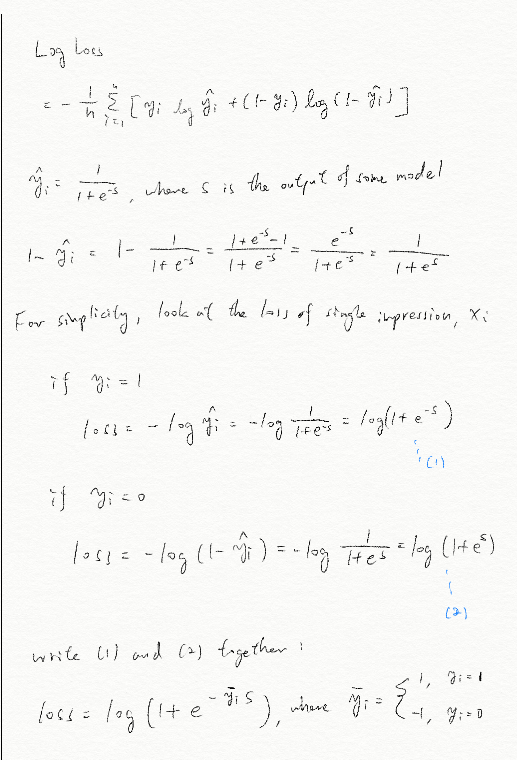 Log loss
= - 1/n Σ_{i=1}^{n} [ y_i log ŷ_i + (1 - y_i) log (1 - ŷ_i) ]
ŷ_i = 1/(1+e^{-s}), where s is the output of some model
1 - ŷ_i = 1 - 1/(1+e^{-s}) = (1+e^{-s}-1)/(1+e^{-s}) = e^{-s}/(1+e^{-s}) = 1/(1+e^{s})
For simplicity, look at the loss of single impression, x_i
if y_i = 1
loss = - log ŷ_i = - log 1/(1+e^{-s}) = log(1+e^{-s})
(1)
if y_i = 0
loss = - log (1 - ŷ_i) = - log 1/(1+e^{s}) = log (1+e^{s})
(2)
write (1) and (2) together :
loss = log (1 + e^{-ȳ_i s}), where ȳ_i = { 1, y_i = 1
-1, y_i = 0